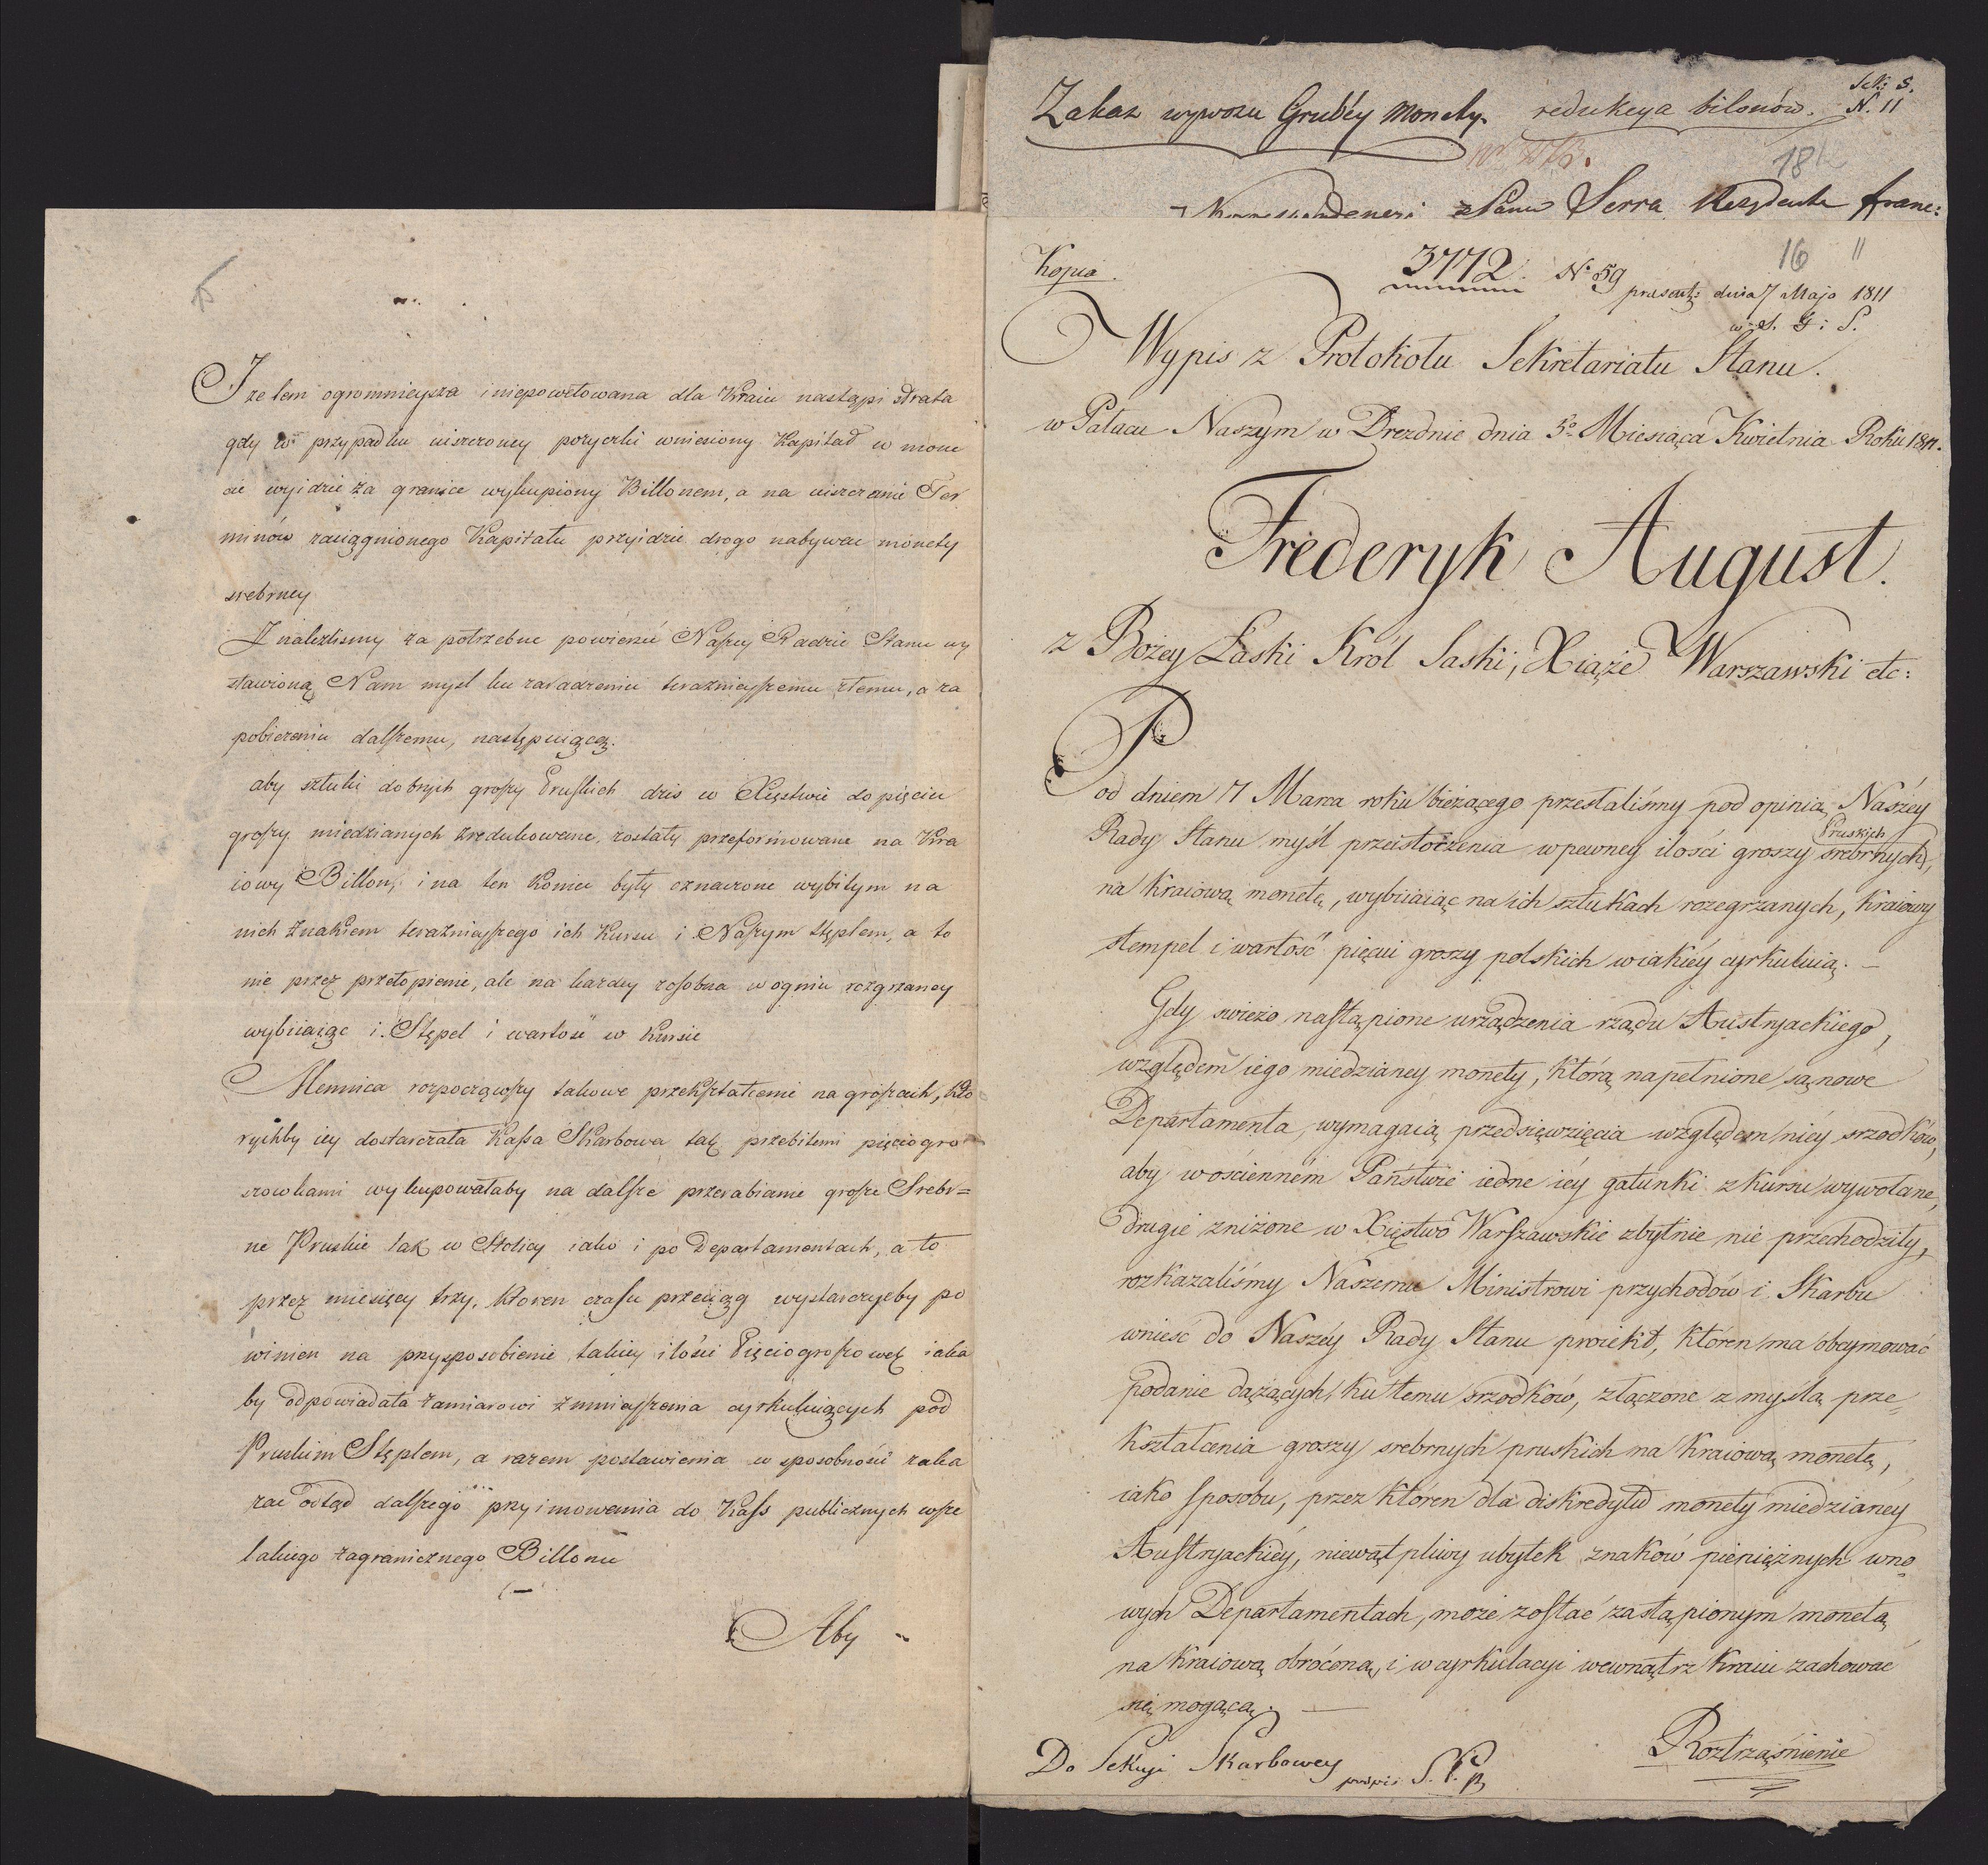 I że tem ogromnieysza i niepowetowana dla Kraiu nastąpi strata
gdy w przypadku uiszczoney pożyczki wniesiony Kapitał w mone
cie wyidzie za granice wykupiony Billonem, a na uiszczenie Ter
minów zaciągnionego Kapitału przyidzie drogo nabywac monety
srebrney
Znalezlismy za potrzebne powierzić Naszey Radzie Stanu wy
stawioną Nam mysl ku zaradzeniu teraznieyszemu złemu, a za
pobieżeniu dalszemu, następuiącą.
aby sztuki dobrych groszy Pruskich dzis w Xięstwie do pięciu
groszy miedzianych zredukowane, zostały przeformowane na Kra
iowy Billon, i na ten koniec były oznaczone wybitym na
nich znakiem teraznieyszego ich Kursu i Naszym stęplem, a to
nie przez przetopienie, ale na każdey zosobna w ogniu rozgrzaney
wybiiaiąc i Stępel i wartość w Kursie
Mennica rozpocząwszy takowe przekształcenie na groszach, któ
rychby iey dostarczała Kassa Skarbowa, tak przebitemi pięciogro
szowkami wykupowałaby na dalsze przerabianie grosze Srebr=
ne Pruskie tak w Stolicy iako i po Departamentach, a to
przez miesięcy trzy, ktoren czasu przeciąg wystarczyćby po
winien na przysposobienie takiey ilości Pięciogroszowek iaka
by odpowiadała zamiarowi zmnieyszenia cyrkuluiących pod
Pruskim Stęplem, a razem postawienia w sposobności zaka
zać odtąd dalszego przyimowania do Kass publicznych wsze
lakiego zagranicznego Billonu
Aby
Sek: S.
Zakaz wywozu Grubéy Monety. redukcya bilonów. N. 11
18
z Pana Serra Rezydenta franc:
16 11
Kopia. 3772. No 59 præsent: dnia 7 Maja 1811
w S. G: S.
Wypis z Protokołu Sekretariatu Stanu.
w Pałacu Naszym w Dreźdnie dnia 5o Miesiąca Kwietnia Roku 1811.
Frederyk August.
z Bożey Łaski Król Saski, Xiąże Warszawski etc:
Pod dniem 7 Marca roku bieżącego przesłaliśmy pod opinią Naszéy
Pruskich
Rady Stanu myśl przeistoczenia w pewney ilości groszy srebrnych,
na kraiową monetę, wybiiaiąc na ich sztukach rozegrzanych, kraiowy
stempel i wartość pięciu groszy polskich w iakiéy cyrkuluią. —
Gdy swieżo nastąpione urządzenia rządu Austryackiego,
względem iego miedzianey monety, którą napełnione są nowe
Departamenta, wymagaią przedsięwzięcia względem niéy srzodków,
aby w ościenném Państwie iedne iéy gatunki z kursu wywołane,
drugie zniżone w Xięstwo Warszawskie zbytnie nie przechodziły,
rozkazaliśmy Naszemu Ministrowi przychodów i Skarbu
wnieść do Naszéy Rady Stanu proiekt, któren ma obeymować
podanie dążących ku temu srzodków, złączone z myślą prze„
kształcenia groszy srebrnych pruskich na kraiową monetę,
iako sposobu, przez któren dla diskredytu monety miedzianéy
Austryackiéy, niewątpliwy ubytek znaków pieniężnych w no„
wych Departamentach, może zostać zastąpionym monetą
na kraiową obróconą, i w cyrkulacyi wewnątrz kraiu zachować
się mogącą. —
Roztrząśnienie
Do Sekcyi Skarbowey podpis: S. P.